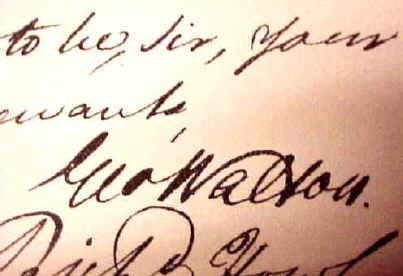 to be, Sir, Your
ervant,
Geo Watson.